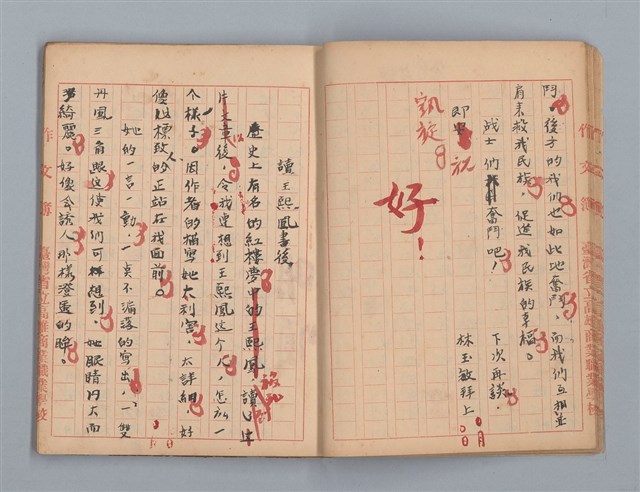 鬥。後才的我們也如此地奮鬥，而我們互相並
肩來救我民族，促進我民族的幸福。
战士們奮鬥吧！
下次再談。
即祝
凱旋
林玉敏拜上
月 日
好！
作文簿
臺灣省立高雄商業職業學校
讀王熙鳳書後
歷史上有名的紅樓夢中的王熙鳳，讀
片文章後，令我連想到王熙鳳這个人，怎么一
个樣子。因作者的描寫她太利害，太詳細，好
像以標致的人正站在我面前。
她的一言一動，一点不漏落的寫出，一雙
丹鳳三角眼這使我們可想到，她眼睛円大而
綺麗。好像会誘人那樣澄藍的眸。
作文簿
臺灣省立高雄商業職業學校